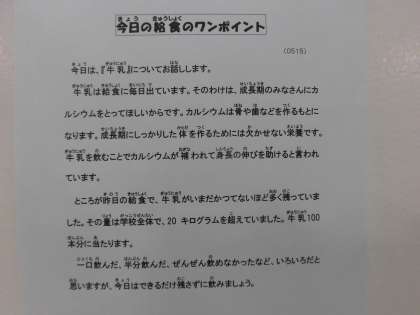 今日の給食のワンポイント
(0515)
今日は、『牛乳』についてお話しします。
牛乳は給食に毎日出ています。そのわけは、成長期のみなさんにカ
ルシウムをとってほしいからです。カルシウムは骨や歯などを作るもとに
なります。成長期にしっかりした体を作るためには欠かせない栄養です。
牛乳を飲むことでカルシウムが補われて身長の伸びを助けると言われ
ています。
ところが昨日の給食で、牛乳がいまだかつてないほど多く残ってい
ました。その量は学校全体で、20 キログラムを超えていました。牛乳100
本分に当たります。
一口飲んだ、半分飲んだ、ぜんぜん飲めなかったなど、いろいろだと
思いますが、今日はできるだけ残さずに飲みましょう。